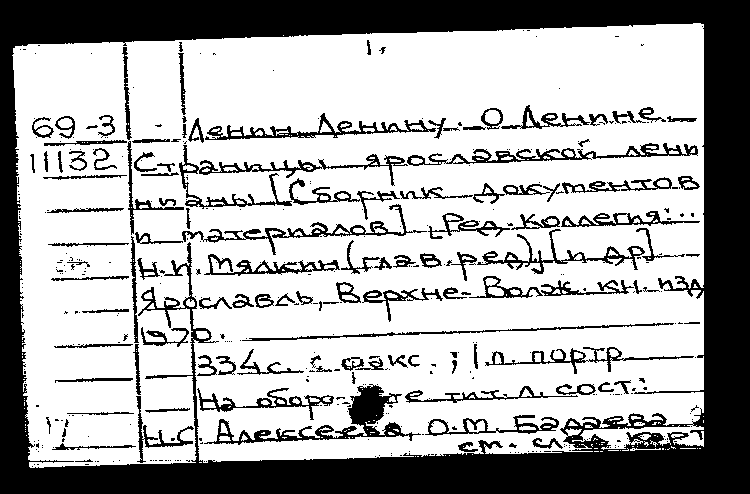 1,
69-3 Ленин Ленину. О Ленине.
11132 Страницы ярославской лени
нианы [Сборник документов
и материалов] [Ред. коллегия:..
Н.П. Мялкин (глав. ред), [и др]
Ярославль, Верхне-Волж. кн. изд
1970.
334с. с факс.; 1 л. портр.
На обороте тит. л. сост.:
Н.С. Алексеева, О.М. Бадаева
см. след. карт